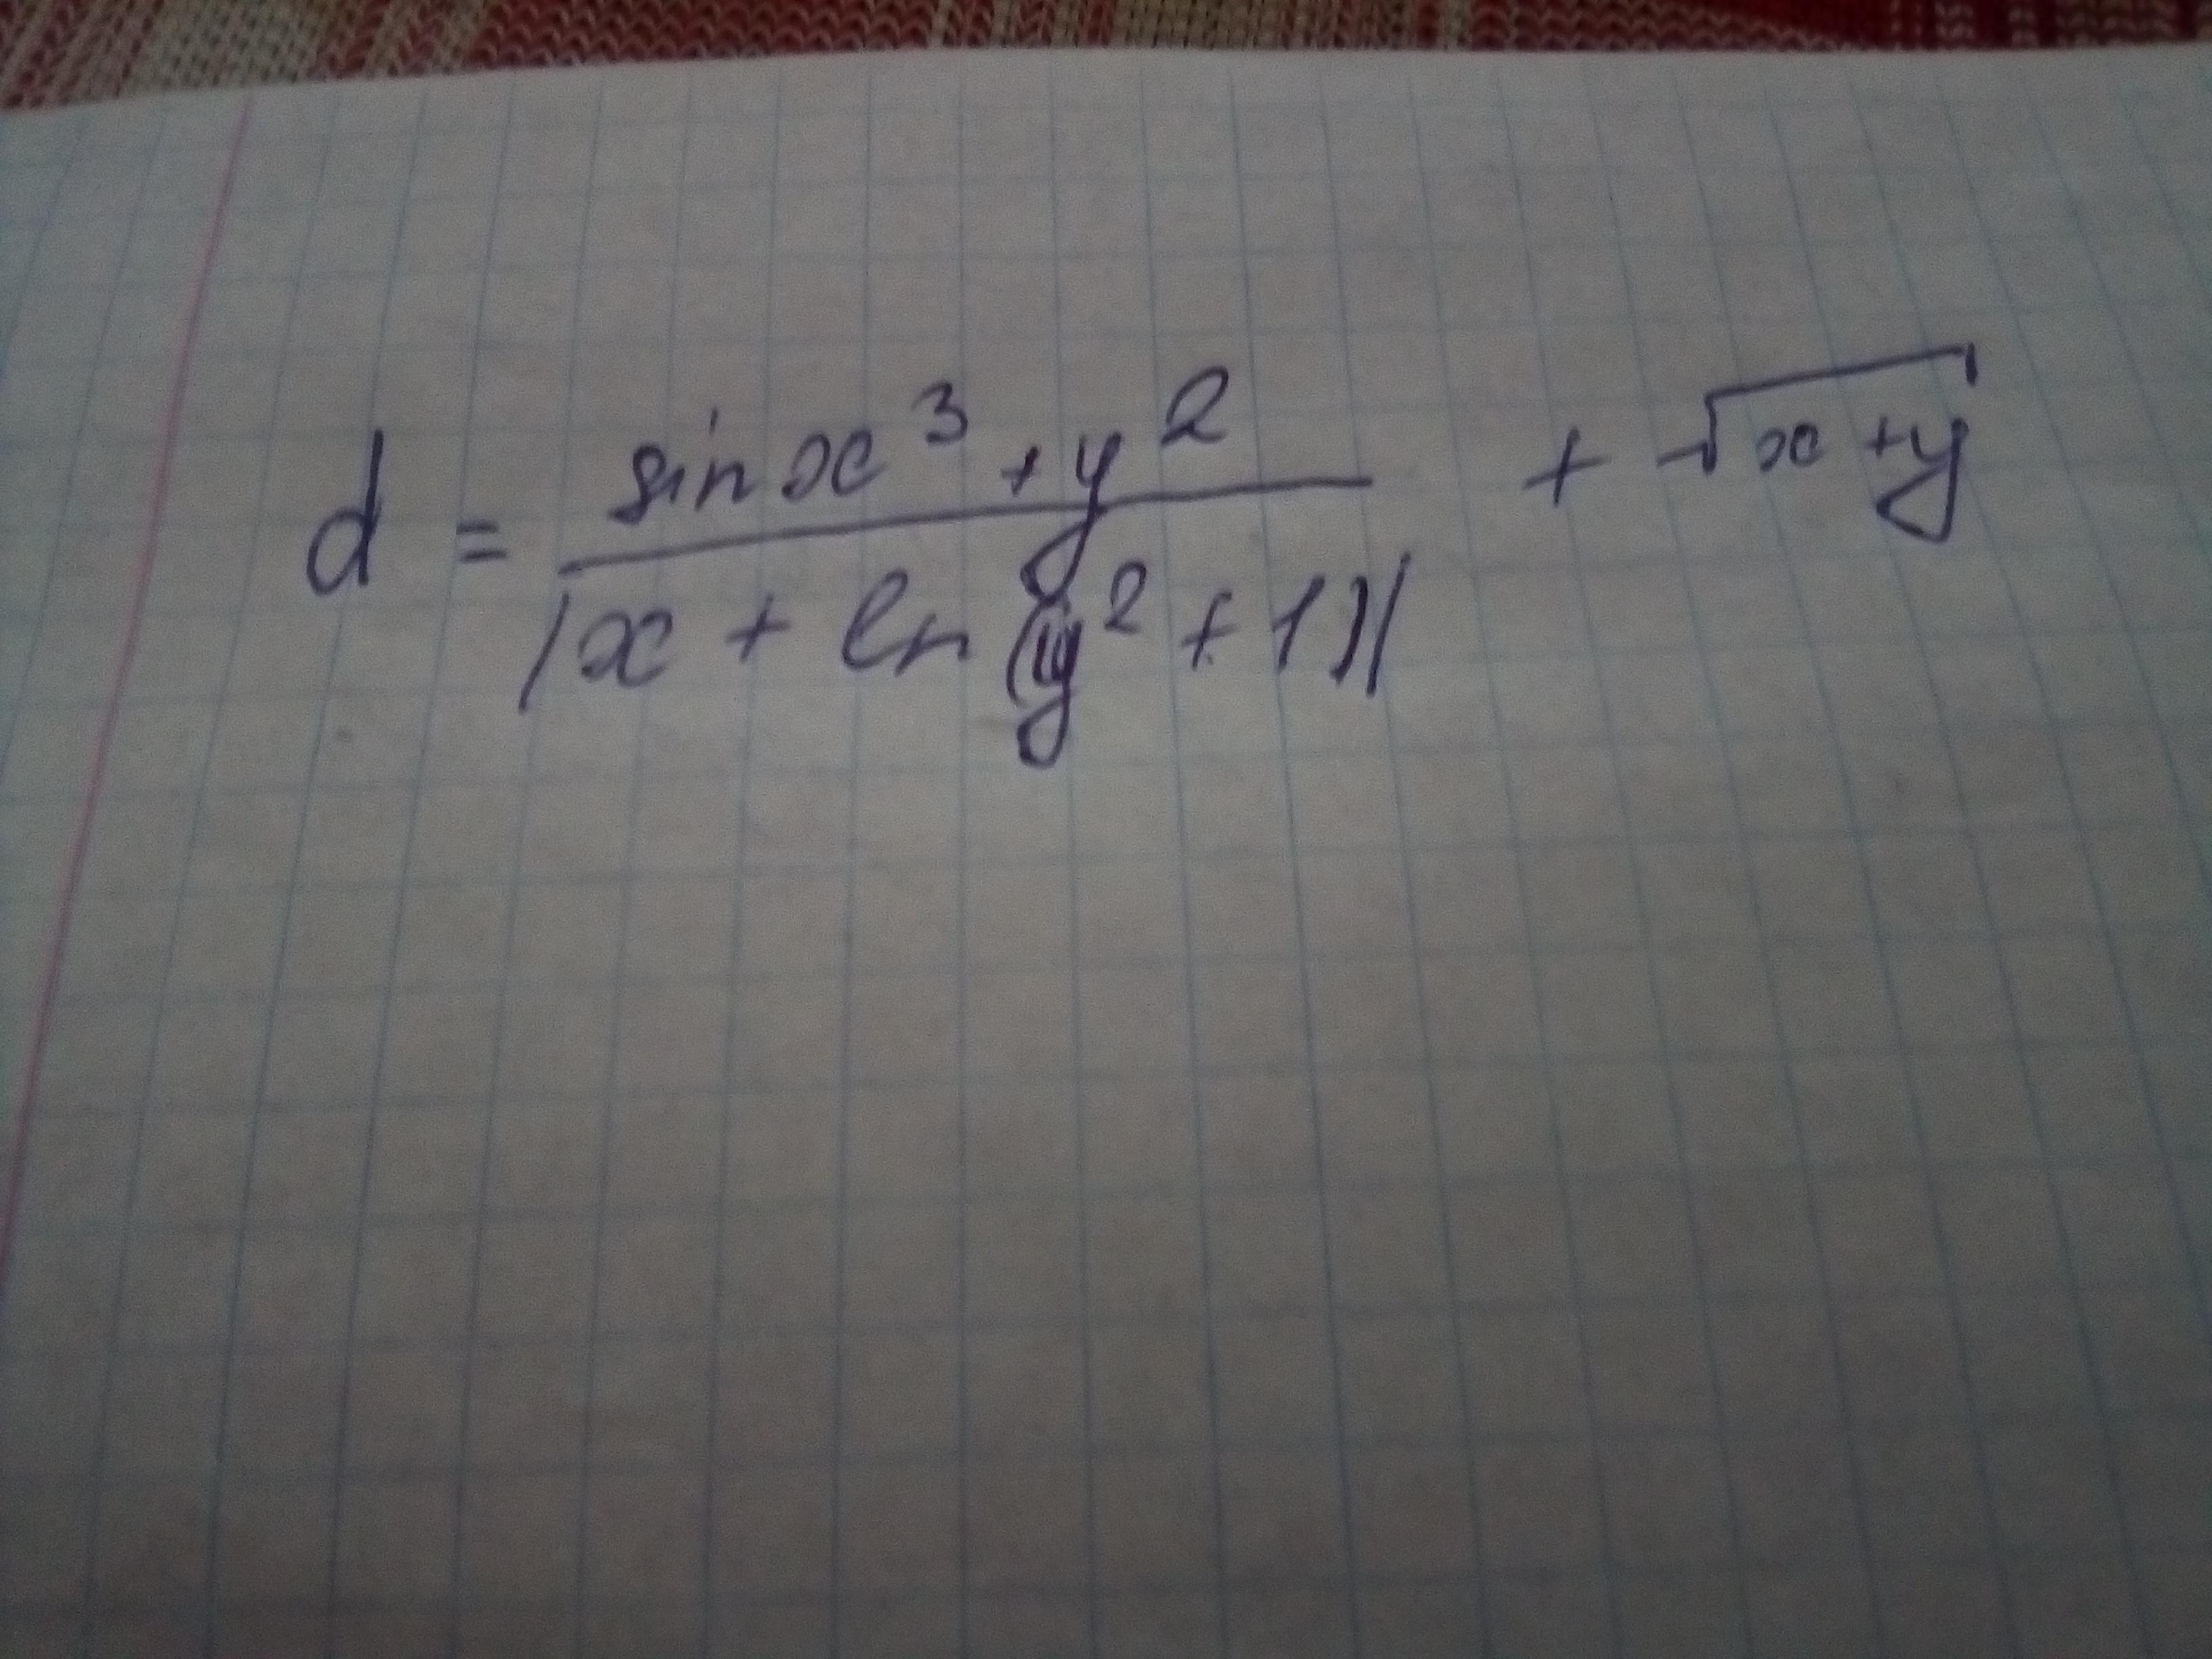 d = (sin x³ + y²) / |x + ln(y² + 1)| + √(x + y)